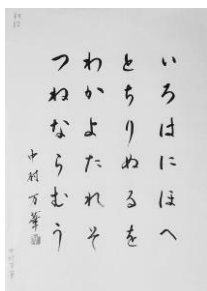 いろはにほへ
とちりぬるを
わかよたれそ
つねならむう
中村万葉